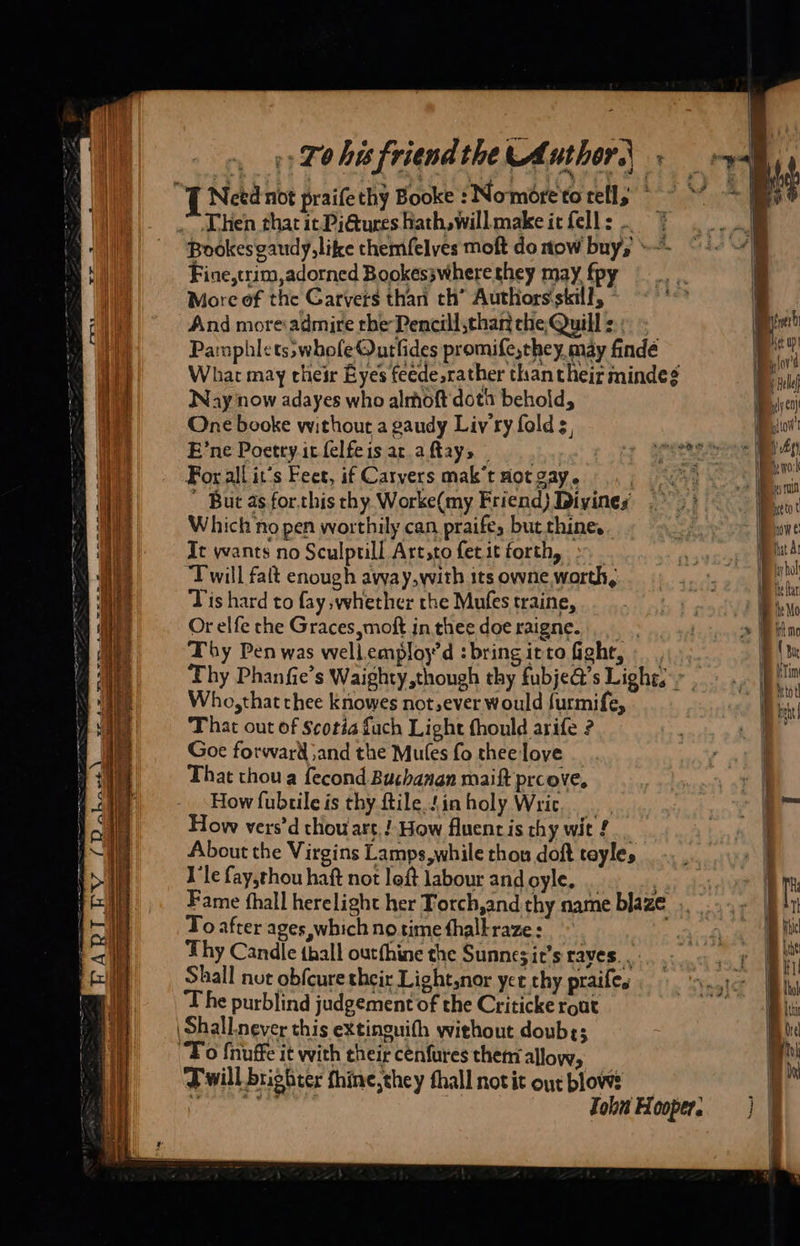 To his friend the Author.
I Need not praiſe thy Booke : No more to tell,
Then that it Pictures hath, will make it ſell :
Bookes gaudy, like themſelves moſt do now buy,
Fine, trim, adorned Bookes; where they may ſpy
More of the Carvers than th' Authors skill,
And more admire the Pencill, than the Quill :
Pamphlets, whoſe Outſides promiſe, they may finde
What may their Eyes feede, rather than their mindes
Nay now adayes who almoſt doth behold,
One booke without a gaudy Liv'ry fold :,
E'ne Poetry it ſelfe is at a ſtay,
For all it's Feet, if Carvers mak't not gay.
But as for this thy Worke (my Friend) Divines
Which no pen worthily can praiſe, but thine,
It wants no Sculptill Art, to ſet it forth,
Twill faſt enough away, with its owne worth,
Tis hard to ſay, whether the Muſes traine,
Or elſe the Graces, moſt in thee doe raigne.
Thy Pen was well employ'd : bring it to ſight,
Thy Phanſie's Waighty, though thy ſubject's Light,
Who, that thee knowes not, ever would ſurmiſe,
That out of Scotia ſuch Light ſhould ariſe ?
Goe forward, and the Muſes ſo thee love
That thou a ſecond Buchanan maiſt prcove,
How ſubtile is thy ſtile ! in holy Writ
How vers'd thou art ! How fluent is thy wit !
About the Virgins Lamps, while thou doſt toyle,
I'le ſay, thou haſt not loſt labour and oyle,
Fame ſhall herelight her Torch, and thy name blaze
To after ages, which no time ſhall raze :
Thy Candle ſhall outſhine the Sunnes it's rayes.
Shall not obſcure their Light, nor yet thy praiſe,
The purblind judgement of the Criticke rout
Shall never this extinguiſh without doubt;
To ſnuffe it with their cenſures them allow,
Twill brighter ſhine, they ſhall not it out blow:
Iohn Hooper.